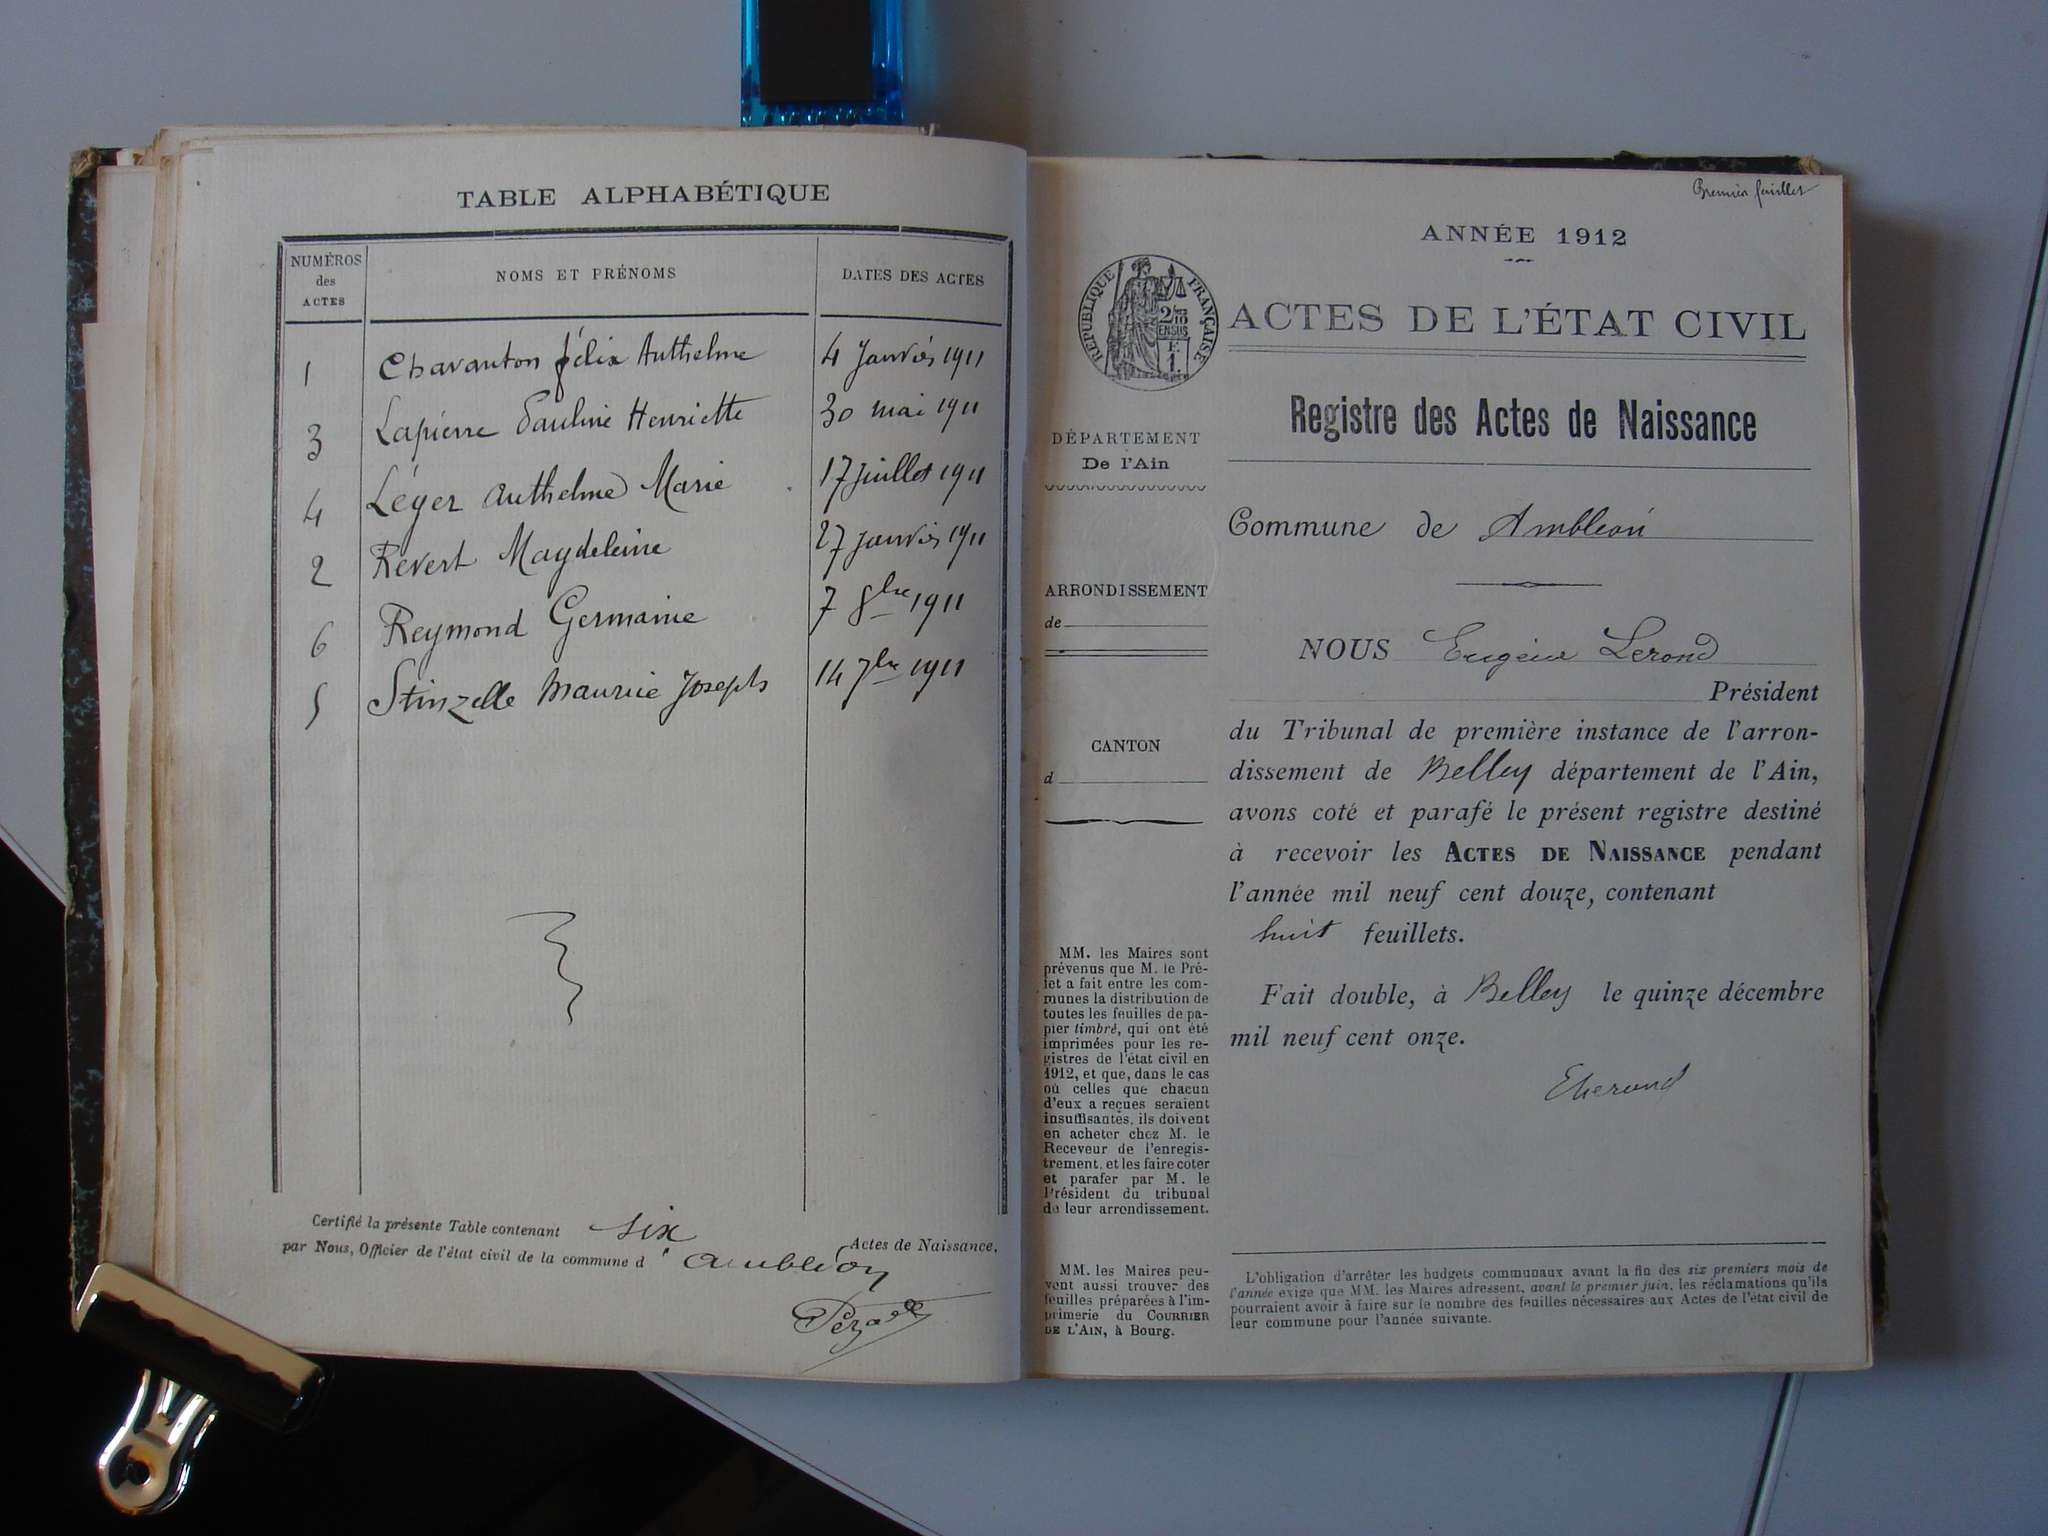 TABLE ALPHABÉTIQUE
NUMÉROS des ACTES
NOMS ET PRÉNOMS
DATES DES ACTES
1 Chavanton félix Anthelme 4 Janvier 1911
3 Lapierre Pauline Henriette 30 mai 1911
4 Léger Anthelme Marie 17 juillet 1911
2 Revert Magdeleine 27 janvier 1911
6 Reymond Germaine 7 8bre 1911
5 Stinzelle Maurice Joseph 14 7bre 1911
Certifié la présente Table contenant six Actes de Naissance,
par Nous, Officier de l'état civil de la commune d' Ambléon
Premier feuillet
ANNÉE 1912
RÉPUBLIQUE FRANÇAISE
2/10 EN SUS
F. 1.
ACTES DE L'ÉTAT CIVIL
Registre des Actes de Naissance
DÉPARTEMENT
De l'Ain
Commune de Ambléon
ARRONDISSEMENT
de
CANTON
d
NOUS Eugène Lerond
Président
du Tribunal de première instance de l'arron-
dissement de Belley département de l'Ain,
avons coté et parafé le présent registre destiné
à recevoir les ACTES DE NAISSANCE pendant
l'année mil neuf cent douze, contenant
huit feuillets.
Fait double, à Belley le quinze décembre
mil neuf cent onze.
MM. les Maires sont
prévenus que M. le Pré-
fet a fait entre les com-
munes la distribution de
toutes les feuilles de pa-
pier timbré, qui ont été
imprimées pour les re-
gistres de l'état civil en
1912, et que, dans le cas
où celles que chacun
d'eux a reçues seraient
insuffisantes, ils doivent
en acheter chez M. le
Receveur de l'enregis-
trement, et les faire coter
et parafer par M. le
Président du tribunal
de leur arrondissement.
MM. les Maires peu-
vent aussi trouver des
feuilles préparées à l'im-
primerie du COURRIER
DE L'AIN, à Bourg.
L'obligation d'arrêter les budgets communaux avant la fin des six premiers mois de
l'année exige que MM. les Maires adressent, avant le premier juin, les réclamations qu'ils
pourraient avoir à faire sur le nombre des feuilles nécessaires aux Actes de l'état civil de
leur commune pour l'année suivante.